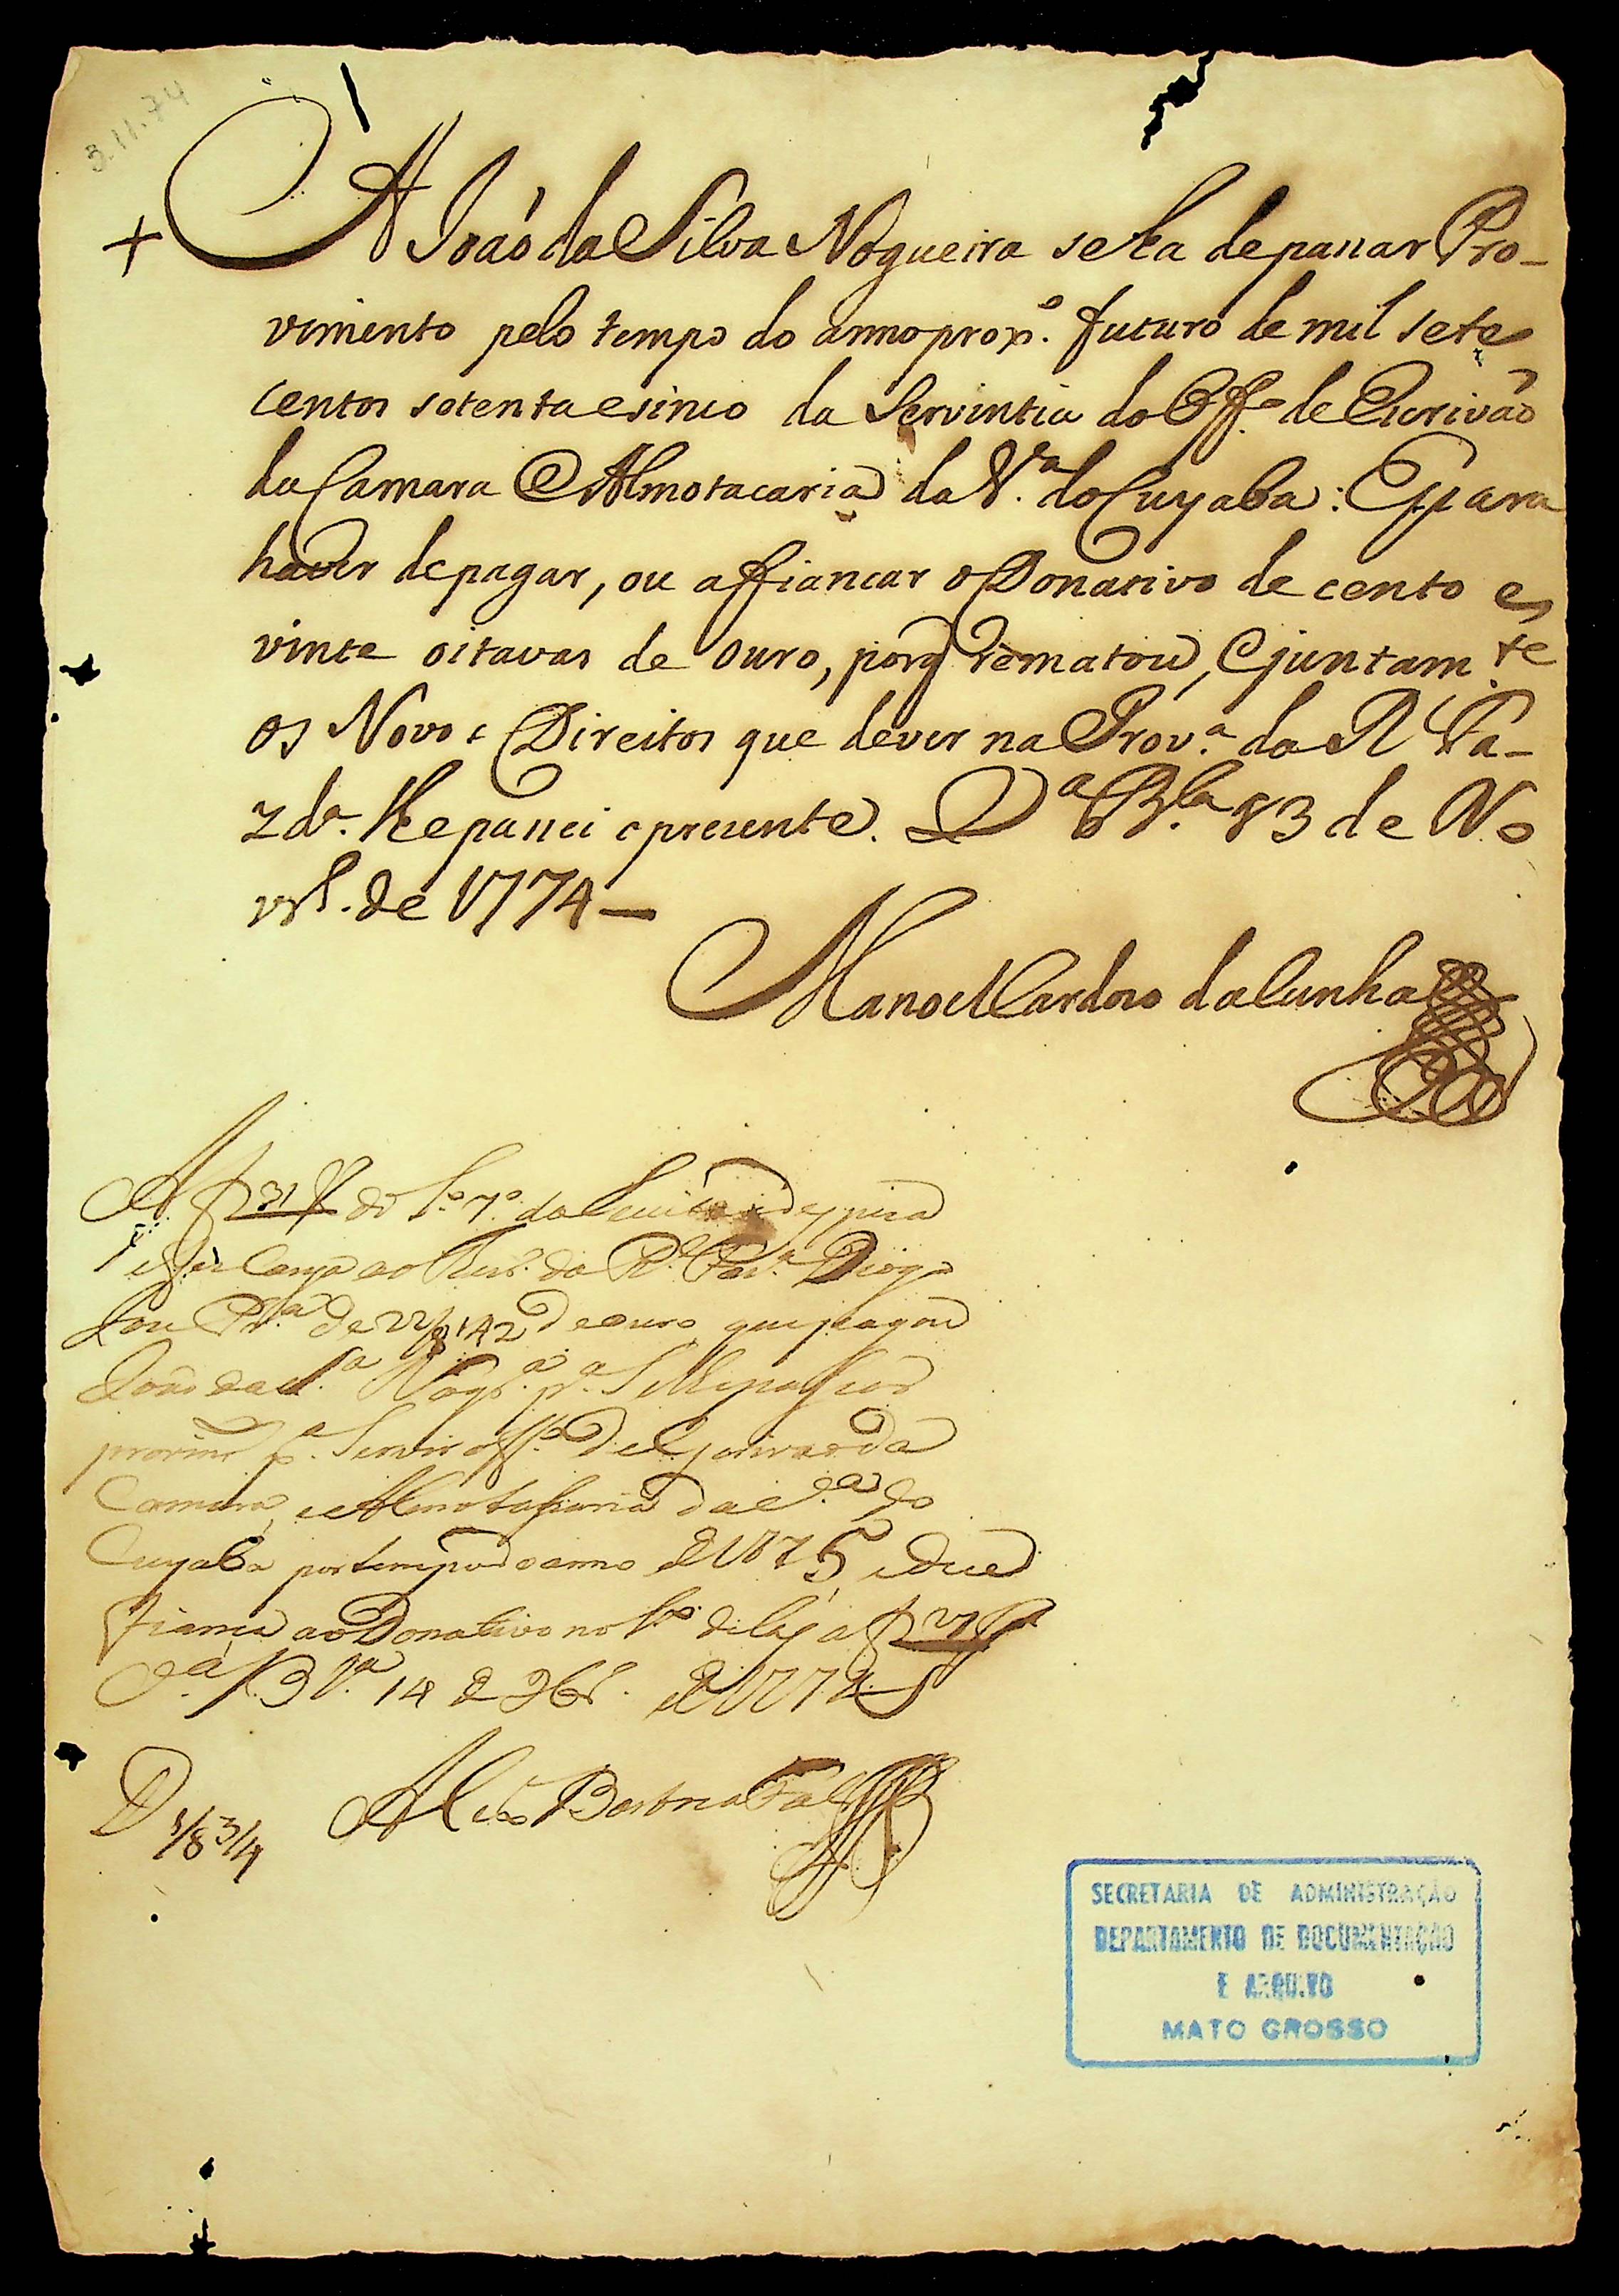 3.11.74
A João da Silva Nogueira se ha de passar Pro-
vimento pelo tempo do anno prox.º futuro de mil sete
centos setenta e sinco da Serventia do Off.º de Escrivão
da Camara e Almotacaria da V.ª do Cuyaba: E para
haver de pagar, ou affiancar o Donativo de cento e
vinte oitavas de ouro, porq̃ rematou, e juntam.te
os Novos Direitos que dever na Prov.ª da R Fa-
zdª. lhe passei o presente. V.ª B.la 3 de No
vr.º de 1774—
Manoel Cardozo da Cunha
A f 31 do L.º 7.º da
ao da R.l Faz.ª Diogo
Joze P.ra de de ouro que pagou
João da S.ª Nogr.ª p.ª se lhe passar
provim.to p.ª Servir o off.º de Escrivão da
Camara, e Almotassaria da V.ª do
Cuyaba por tempo do anno de 1775 e deu
fiança ao Donativo no L.º dellas a f
V.ª B.la 14 de 9br.º de 1774
D 1/8 3/4
SECRETARIA DE ADMINISTRAÇÃO
DEPARTAMENTO DE DOCUMENTAÇÃO
E ARQUIVO
MATO GROSSO